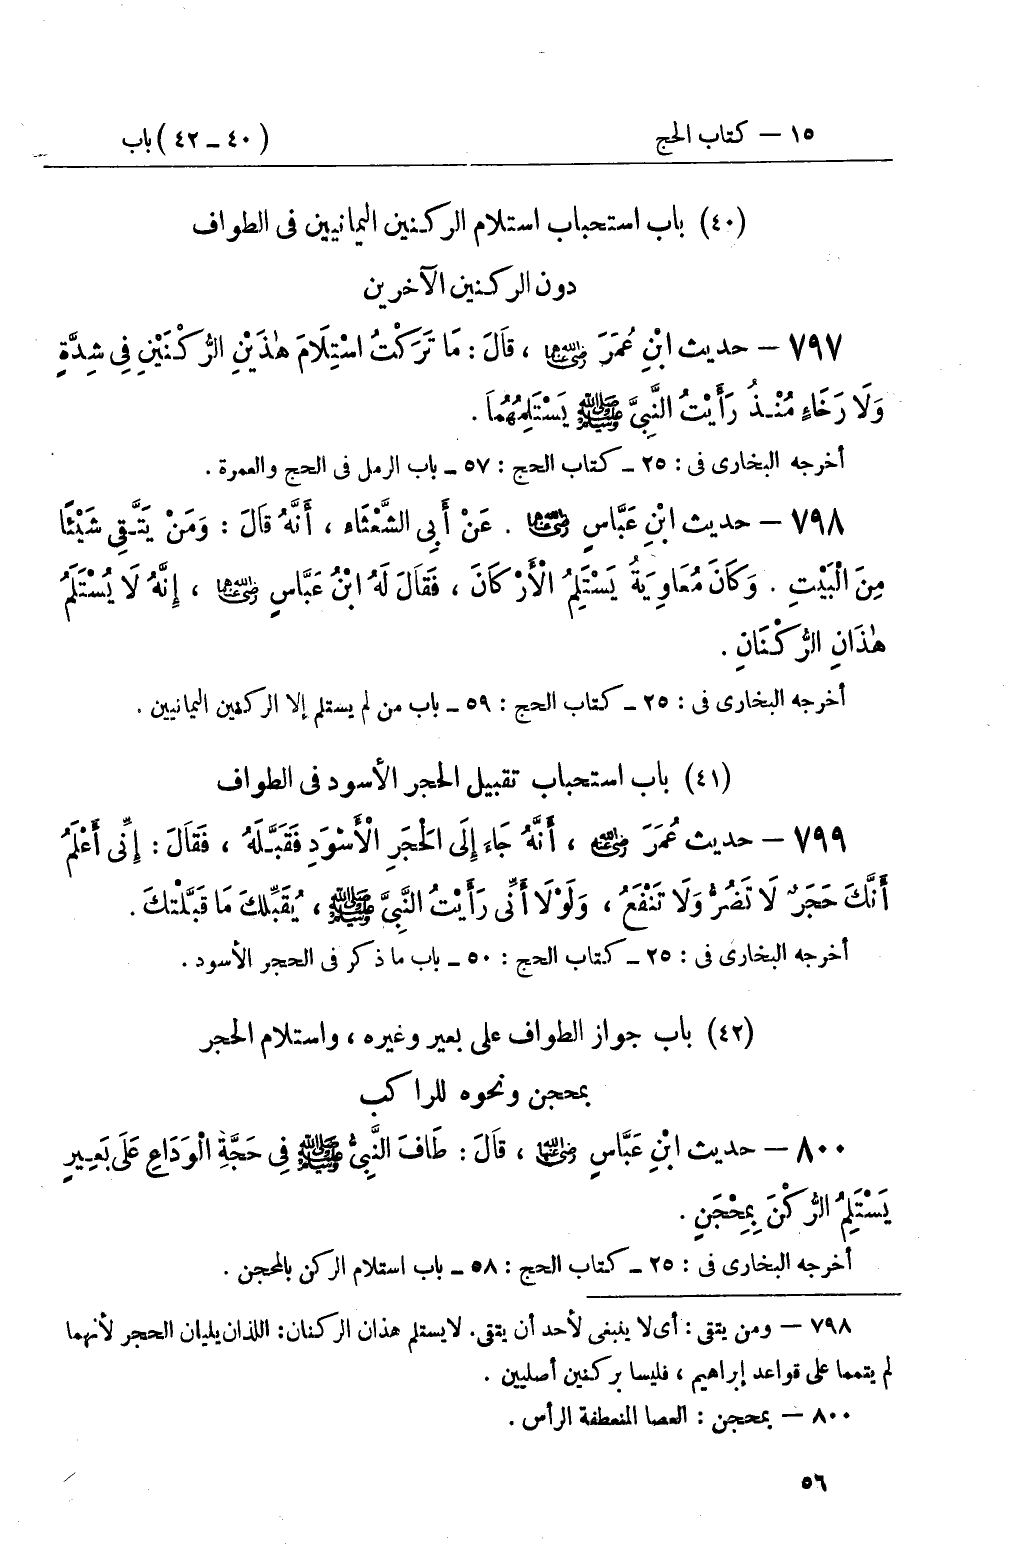 ١٥ — كتاب الحج (٤٠ – ٤٢) باب
(٤٠) باب استحباب استلام الركنين اليمانيين فى الطواف
دون الركنين الآخرين
٧٩٧ — حديث ابْنِ عُمَرَ رضي الله عنهما ، قَالَ : مَا تَرَكْتُ اسْتِلَامَ هٰذَيْنِ الرُّكْنَيْنِ فِي شِدَّةٍ
وَلَا رَخَاءٍ مُنْذُ رَأَيْتُ النَّبِيَّ ﷺ يَسْتَلِمُهُمَا .
أخرجه البخارى فى : ٢٥ – كتاب الحج : ٥٧ – باب الرمل فى الحج والعمرة .
٧٩٨ — حديث ابْنِ عَبَّاسٍ رضي الله عنهما . عَنْ أَبِي الشَّعْثَاءِ ، أَنَّهُ قَالَ : وَمَنْ يَتَّقِي شَيْئًا
مِنَ الْبَيْتِ . وَكَانَ مُعَاوِيَةُ يَسْتَلِمُ الْأَرْكَانَ ، فَقَالَ لَهُ ابْنُ عَبَّاسٍ رضي الله عنهما ، إِنَّهُ لَا يُسْتَلَمُ
هٰذَانِ الرُّكْنَانِ .
أخرجه البخارى فى : ٢٥ – كتاب الحج : ٥٩ – باب من لم يستلم إلا الركنين اليمانيين .
(٤١) باب استحباب تقبيل الحجر الأسود فى الطواف
٧٩٩ — حديث عُمَرَ رضي الله عنه ، أَنَّهُ جَاءَ إِلَى الْحَجَرِ الْأَسْوَدِ فَقَبَّلَهُ ، فَقَالَ : إِنِّى أَعْلَمُ
أَنَّكَ حَجَرٌ لَا تَضُرُّ وَلَا تَنْفَعُ ، وَلَوْلَا أَنِّى رَأَيْتُ النَّبِيَّ ﷺ ، يُقَبِّلُكَ مَا قَبَّلْتُكَ .
أخرجه البخارى فى : ٢٥ – كتاب الحج : ٥٠ – باب ما ذكر فى الحجر الأسود .
(٤٢) باب جواز الطواف على بعير وغيره ، واستلام الحجر
بمحجن ونحوه للراكب
٨٠٠ — حديث ابْنِ عَبَّاسٍ رضي الله عنهما ، قَالَ : طَافَ النَّبِيُّ ﷺ فِي حَجَّةِ الْوَدَاعِ عَلَى بَعِيرٍ
يَسْتَلِمُ الرُّكْنَ بِمِحْجَنٍ .
أخرجه البخارى فى : ٢٥ – كتاب الحج : ٥٨ – باب استلام الركن بالمحجن .
٧٩٨ — ومن يتقى : أى لا ينبغى لأحد أن يتقى. لا يستلم هذان الركنان: اللذان يليان الحجر لأنهما
لم يتمما على قواعد إبراهيم ، فليسا بركنين أصليين .
٨٠٠ — بمحجن : العصا المنعطفة الرأس .
٥٦